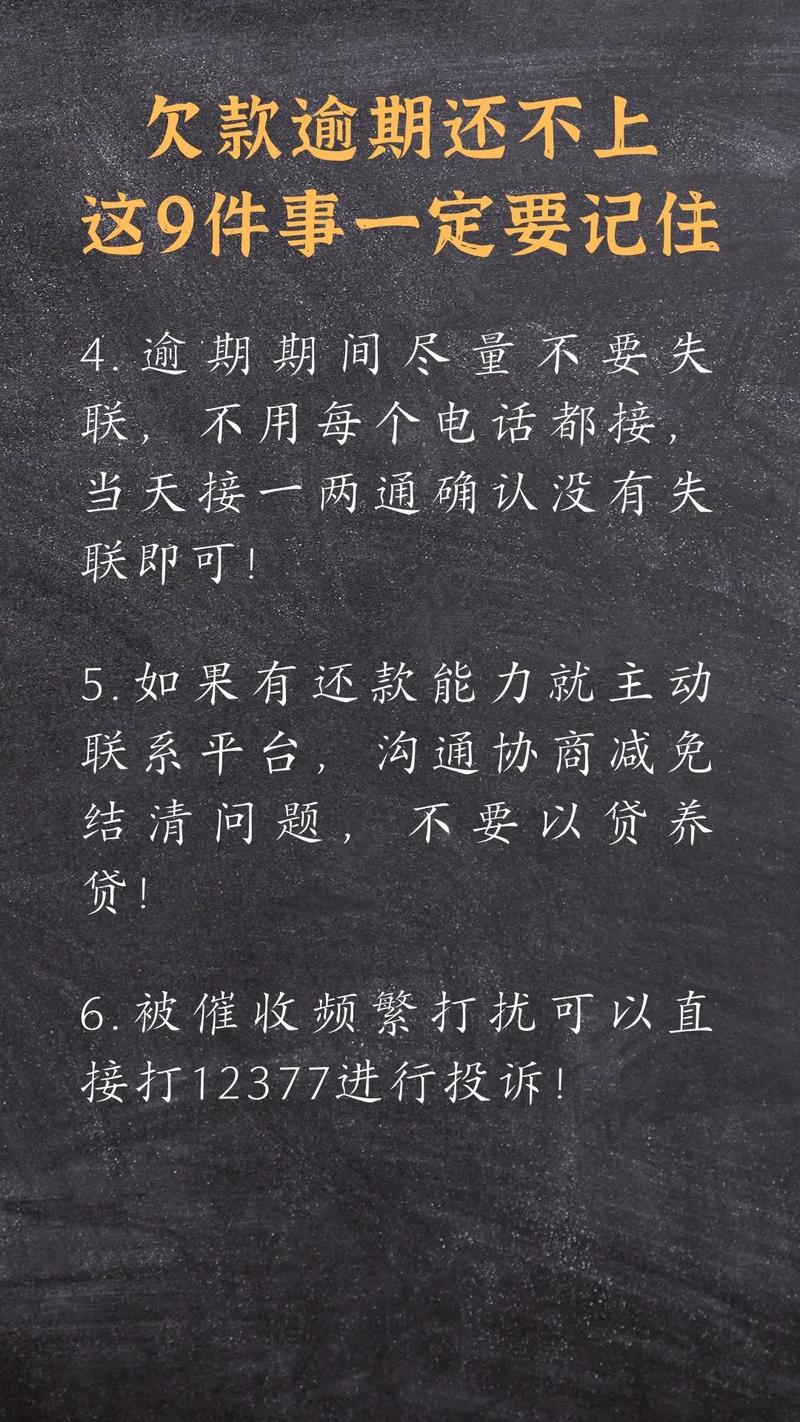 欠款逾期还不上
这9件事一定要记住
4.逾期期间尽量不要失
联，不用每个电话都接，
当天接一两通确认没有失
联即可！
5.如果有还款能力就主动
联系平台，沟通协商减免
结清问题，不要以贷养
贷！
6.被催收频繁打扰可以直
接打12377进行投诉！